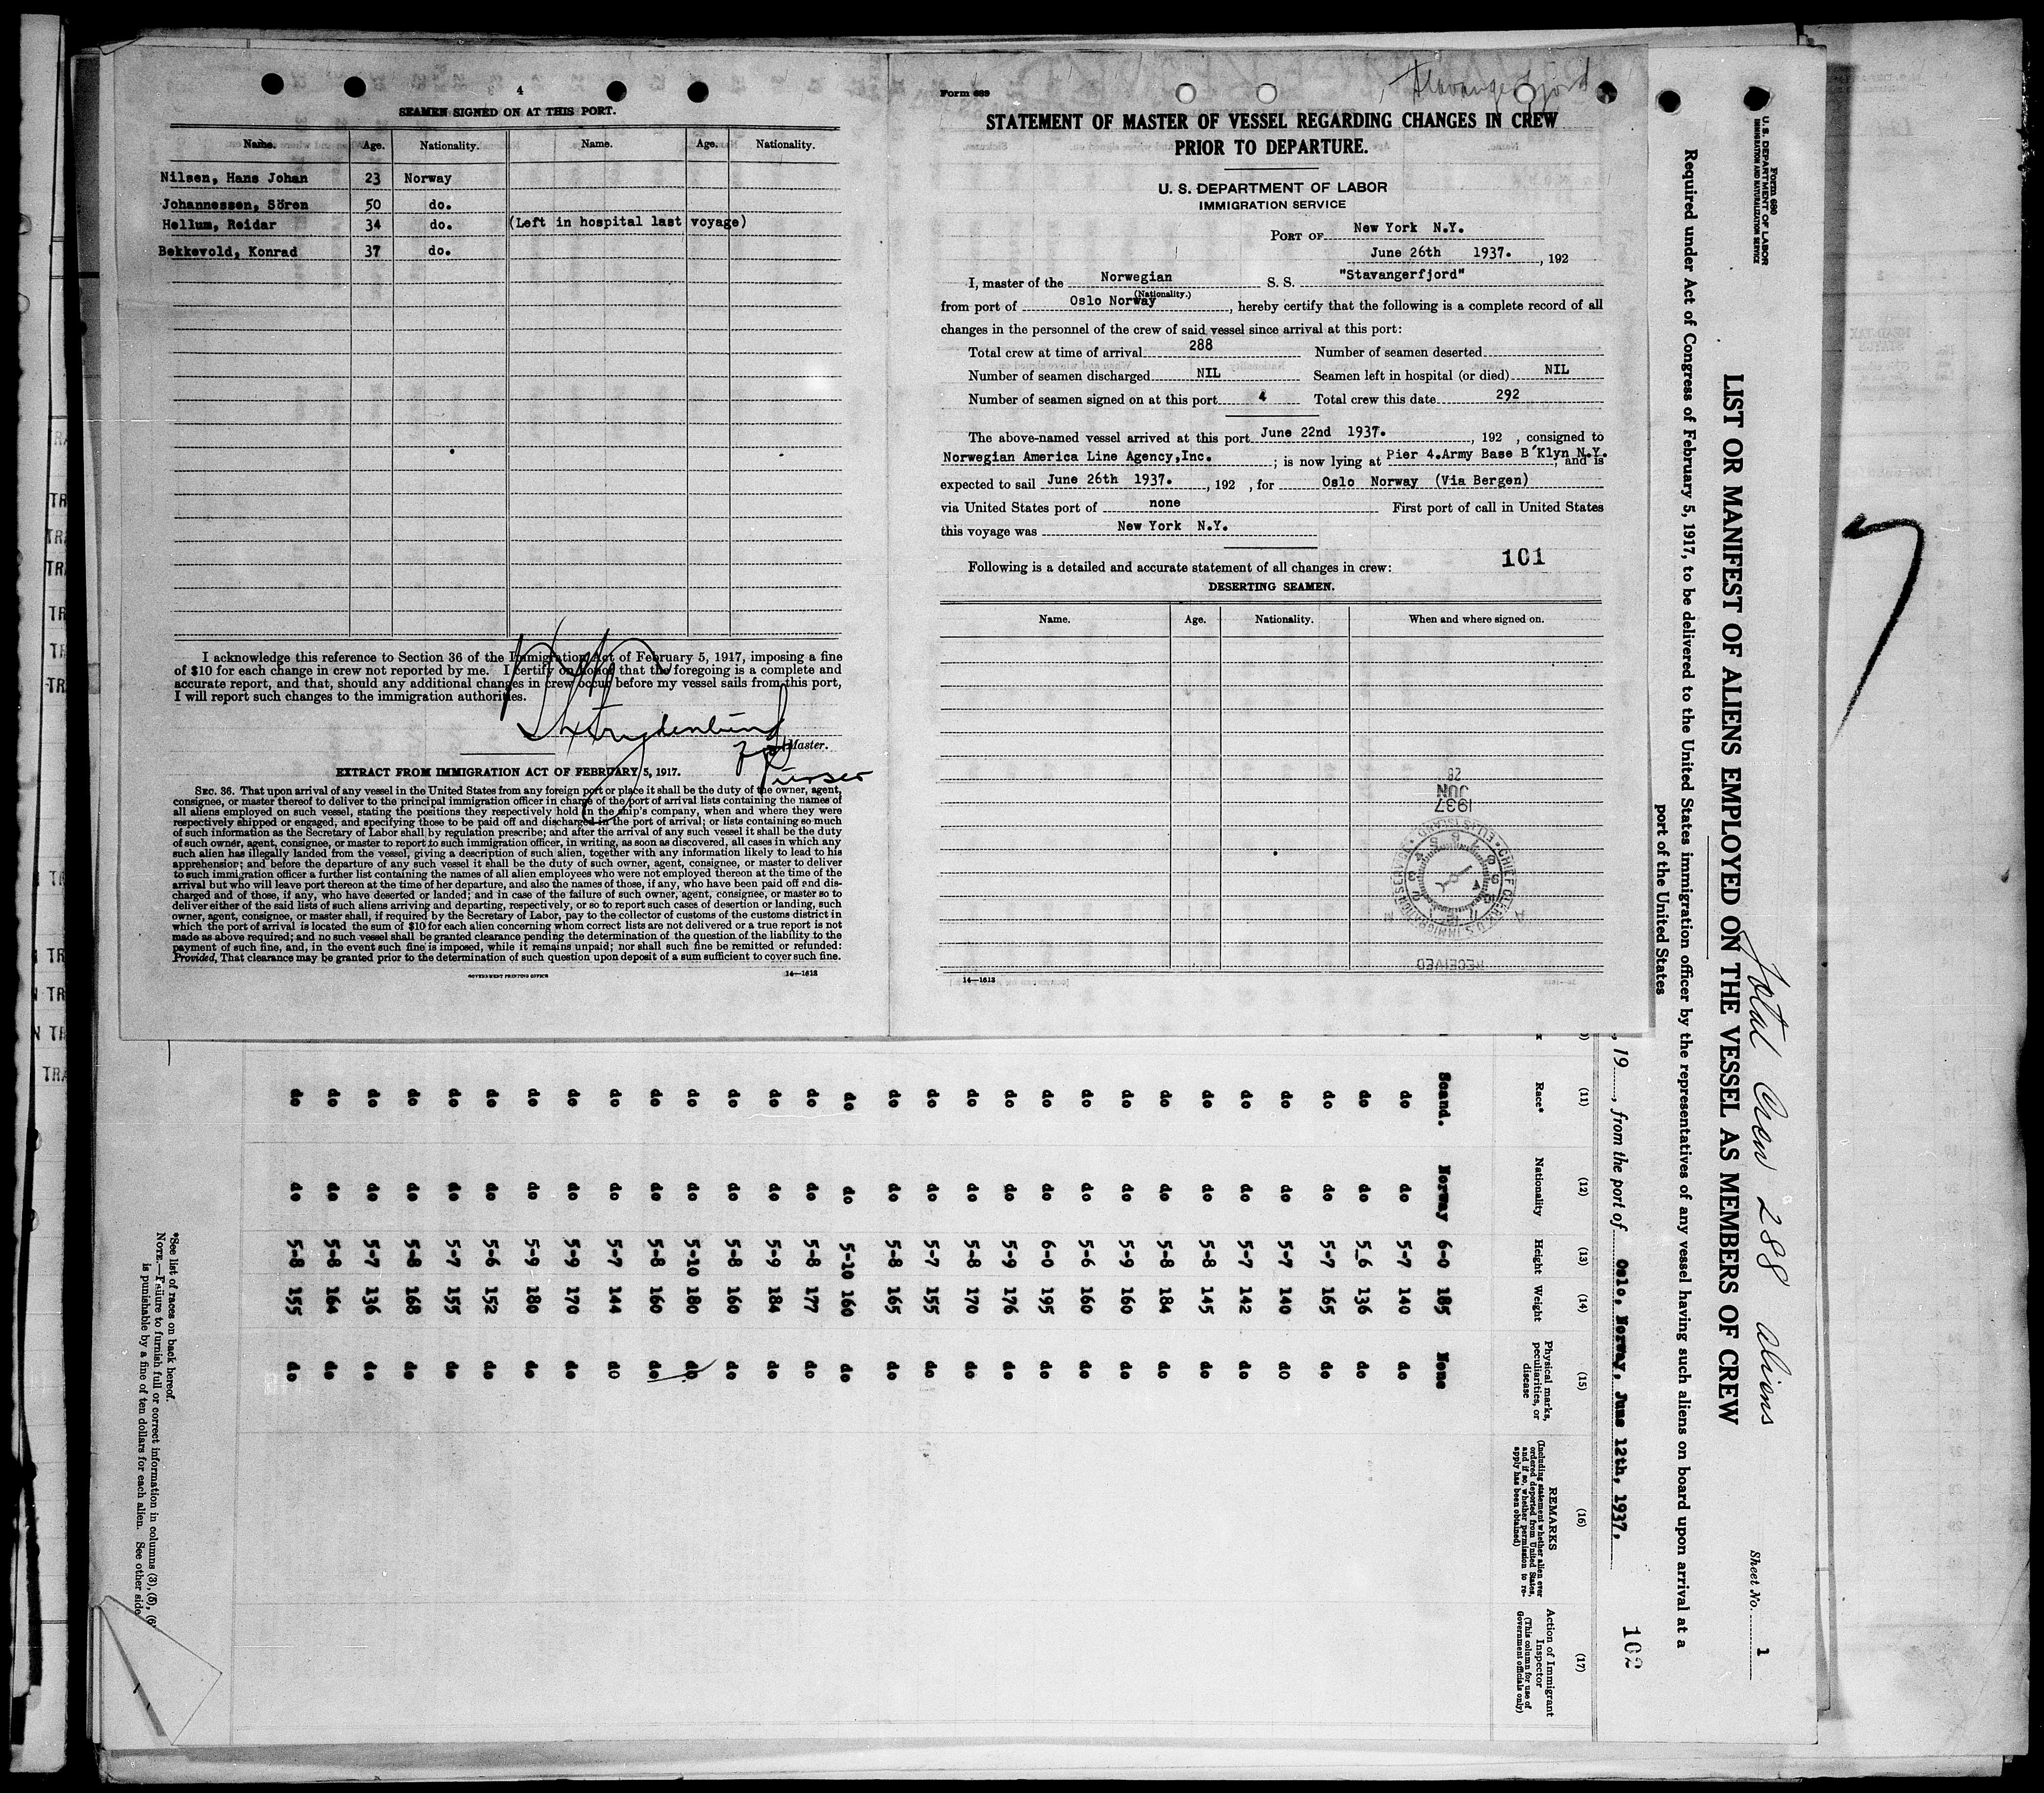 4
SEAMEN SIGNED ON AT THIS PORT.
Name. Age. Nationality. Name. Age. Nationality.
Nilsen, Hans Johan 23 Norway
Johannessen, Sören 50 do.
Hellum, Reidar 34 do. (Left in hospital last voyage)
Bekkevold, Konrad 37 do.
I acknowledge this reference to Section 36 of the Immigration Act of February 5, 1917, imposing a fine
of $10 for each change in crew not reported by me. I certify on honor that the foregoing is a complete and
accurate report, and that, should any additional changes in crew occur before my vessel sails from this port,
I will report such changes to the immigration authorities.
Master.
Purser
EXTRACT FROM IMMIGRATION ACT OF FEBRUARY 5, 1917.
SEC. 36. That upon arrival of any vessel in the United States from any foreign port or place it shall be the duty of the owner, agent,
consignee, or master thereof to deliver to the principal immigration officer in charge of the port of arrival lists containing the names of
all aliens employed on such vessel, stating the positions they respectively hold in the ship's company, when and where they were
respectively shipped or engaged, and specifying those to be paid off and discharged in the port of arrival; or lists containing so much
of such information as the Secretary of Labor shall by regulation prescribe; and after the arrival of any such vessel it shall be the duty
of such owner, agent, consignee, or master to report to such immigration officer, in writing, as soon as discovered, all cases in which any
such alien has illegally landed from the vessel, giving a description of such alien, together with any information likely to lead to his
apprehension; and before the departure of any such vessel it shall be the duty of such owner, agent, consignee, or master to deliver
to such immigration officer a further list containing the names of all alien employees who were not employed thereon at the time of the
arrival but who will leave port thereon at the time of her departure, and also the names of those, if any, who have been paid off and dis-
charged and of those, if any, who have deserted or landed; and in case of the failure of such owner, agent, consignee, or master so to
deliver either of the said lists of such aliens arriving and departing, respectively, or so to report such cases of desertion or landing, such
owner, agent, consignee, or master shall, if required by the Secretary of Labor, pay to the collector of customs of the customs district in
which the port of arrival is located the sum of $10 for each alien concerning whom correct lists are not delivered or a true report is not
made as above required; and no such vessel shall be granted clearance pending the determination of the question of the liability to the
payment of such fine, and, in the event such fine is imposed, while it remains unpaid; nor shall such fine be remitted or refunded:
Provided, That clearance may be granted prior to the determination of such question upon deposit of a sum sufficient to cover such fine.
GOVERNMENT PRINTING OFFICE 14—1613
Form 689
Stavangerfjord
STATEMENT OF MASTER OF VESSEL REGARDING CHANGES IN CREW
PRIOR TO DEPARTURE.
U. S. DEPARTMENT OF LABOR
IMMIGRATION SERVICE
PORT OF New York N.Y.
June 26th 1937. , 192
I, master of the Norwegian S. S. "Stavangerfjord"
(Nationality.)
from port of Oslo Norway , hereby certify that the following is a complete record of all
changes in the personnel of the crew of said vessel since arrival at this port:
Total crew at time of arrival 288 Number of seamen deserted
Number of seamen discharged NIL Seamen left in hospital (or died) NIL
Number of seamen signed on at this port 4 Total crew this date 292
The above-named vessel arrived at this port June 22nd 1937. , 192 , consigned to
Norwegian America Line Agency,Inc. ; is now lying at Pier 4.Army Base B'Klyn N.Y. , and is
expected to sail June 26th 1937. , 192 , for Oslo Norway (Via Bergen)
via United States port of none First port of call in United States
this voyage was New York N.Y.
101
Following is a detailed and accurate statement of all changes in crew:
DESERTING SEAMEN.
Name. Age. Nationality. When and where signed on.
RECEIVED
CHIEF CLERK U.S. IMMIGRATION SERVICE ELLIS ISLAND
1937
JUN
28
14—1613
Form 680
U. S. DEPARTMENT OF LABOR
IMMIGRATION AND NATURALIZATION SERVICE
Sheet No. 1
Total Crew 288 Aliens
LIST OR MANIFEST OF ALIENS EMPLOYED ON THE VESSEL AS MEMBERS OF CREW
Required under Act of Congress of February 5, 1917, to be delivered to the United States immigration officer by the representatives of any vessel having such aliens on board upon arrival at a
port of the United States
, 19 , from the port of Oslo, Norway, June 12th, 1937,
102
(11) (12) (13) (14) (15) (16) (17)
Race* Nationality Height Weight Physical marks, peculiarities, or disease REMARKS (Including statement whether alien ever ordered deported from United States, and if so, whether permission to re-apply has been obtained) Action of Immigrant Inspector (This column for use of Government officials only)
Scand. Norway 6-0 185 None
do do 5-7 140 do
do do 5_6 136 do
do do 5-7 165 do
do do 5-7 140 do
do do 5-7 142 do
do do 5-8 145 do
do do 5-8 184 do
do do 5-9 160 do
do do 5-6 160 do
do do 6-0 195 do
do do 5-9 176 do
do do 5-8 170 do
do do 5-7 155 do
do do 5-8 165 do
do do 5-10 160 do
do do 5-8 177 do
do do 5-9 184 do
do do 5-8 160 do
do do 5-10 180 do
do do 5-8 160 do
do do 5-7 144 do
do do 5-9 170 do
do do 5-9 180 do
do do 5-6 152 do
do do 5-7 155 do
do do 5-8 168 do
do do 5-7 136 do
do do 5-8 164 do
do do 5-8 155 do
*See list of races on back hereof.
NOTE.—Failure to furnish full or correct information in columns (3), (5), (6)
is punishable by a fine of ten dollars for each alien. See other side